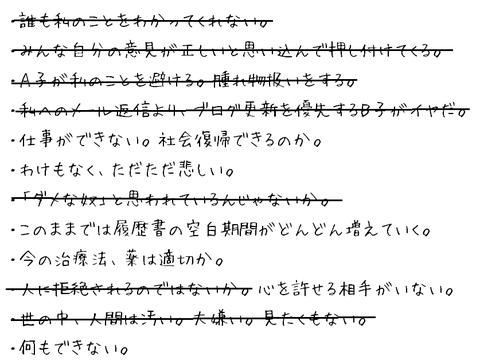 ・誰も私のことをわかってくれない。
・みんな自分の意見が正しいと思い込んで押し付けてくる。
・A子が私のことを避ける。腫れ物扱いをする。
・私へのメール返信より、ブログ更新を優先するB子がイヤだ。
・仕事ができない。社会復帰できるのか。
・わけもなく、ただただ悲しい。
・「ダメな奴」と思われているんじゃないか。
・このままでは履歴書の空白期間がどんどん増えていく。
・今の治療法、薬は適切か。
・人に拒絶されるのではないか。心を許せる相手がいない。
・世の中、人間は汚い。大嫌い。見たくもない。
・何もできない。